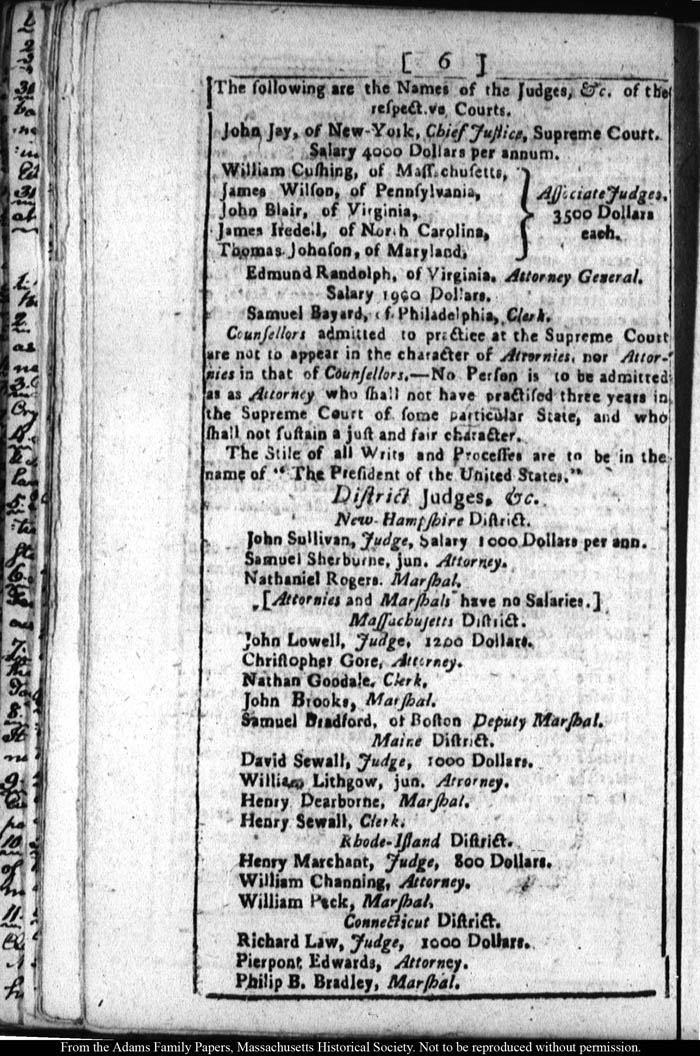 [ 6 ]
The following are the Names of the Judges, &c. of the
respect.ve Courts.
John Jay, of New-York, Chief Justice, Supreme Court.
Salary 4000 Dollars per annum.
William Cushing, of Massachusetts,
James Wilson, of Pennsylvania,
John Blair, of Virginia,
James Iredell, of North Carolina,
Thomas Johnson, of Maryland,
Associate Judges.
3500 Dollars
each.
Edmund Randolph, of Virginia. Attorney General.
Salary 1900 Dollars.
Samuel Bayard, of Philadelphia, Clerk.
Counsellors admitted to practice at the Supreme Court
are not to appear in the character of Attornies, nor Attor-
nies in that of Counsellors.—No Person is to be admitted
as as Attorney who shall not have practised three years in
the Supreme Court of some particular State, and who
shall not sustain a just and fair character.
The Stile of all Writs and Processes are to be in the
name of "The President of the United States."
District Judges, &c.
New-Hampshire District.
John Sullivan, Judge, Salary 1000 Dollars per ann.
Samuel Sherburne, jun. Attorney.
Nathaniel Rogers. Marshal.
[Attornies and Marshals have no Salaries.]
Massachusetts District.
John Lowell, Judge, 1200 Dollars.
Christopher Gore, Attorney.
Nathan Goodale, Clerk.
John Brooks, Marshal.
Samuel Bradford, of Boston Deputy Marshal.
Maine District.
David Sewall, Judge, 1000 Dollars.
William Lithgow, jun. Attorney.
Henry Dearborne, Marshal.
Henry Sewall, Clerk.
Rhode-Island District.
Henry Marchant, Judge, 800 Dollars.
William Channing, Attorney.
William Peck, Marshal.
Connecticut District.
Richard Law, Judge, 1000 Dollars.
Pierpont Edwards, Attorney.
Philip B. Bradley, Marshal.
From the Adams Family Papers, Massachusetts Historical Society. Not to be reproduced without permission.